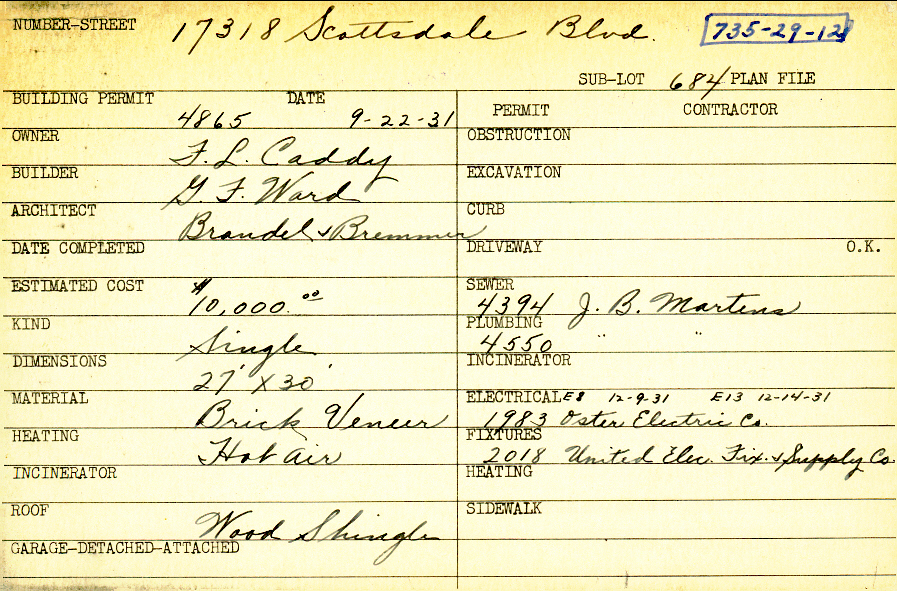 NUMBER-STREET 17318 Scottsdale Blvd. 735-29-12
SUB-LOT 684 PLAN FILE
BUILDING PERMIT DATE
4865 9-22-31
PERMIT CONTRACTOR
OWNER
F. L. Caddy
OBSTRUCTION
BUILDER
G. F. Ward
EXCAVATION
ARCHITECT
Brandel & Bremmer
CURB
DATE COMPLETED
DRIVEWAY O.K.
ESTIMATED COST
$10,000.00
SEWER
4394 J. B. Martens
KIND
Single
PLUMBING
4550 " "
DIMENSIONS
27' X 30'
INCINERATOR
MATERIAL
Brick Veneer
ELECTRICAL E8 12-9-31 E13 12-14-31
1983 Oster Electric Co.
HEATING
Hot air
FIXTURES
2018 United Elec. Fix. & Supply Co.
INCINERATOR
HEATING
ROOF
Wood Shingle
SIDEWALK
GARAGE-DETACHED-ATTACHED